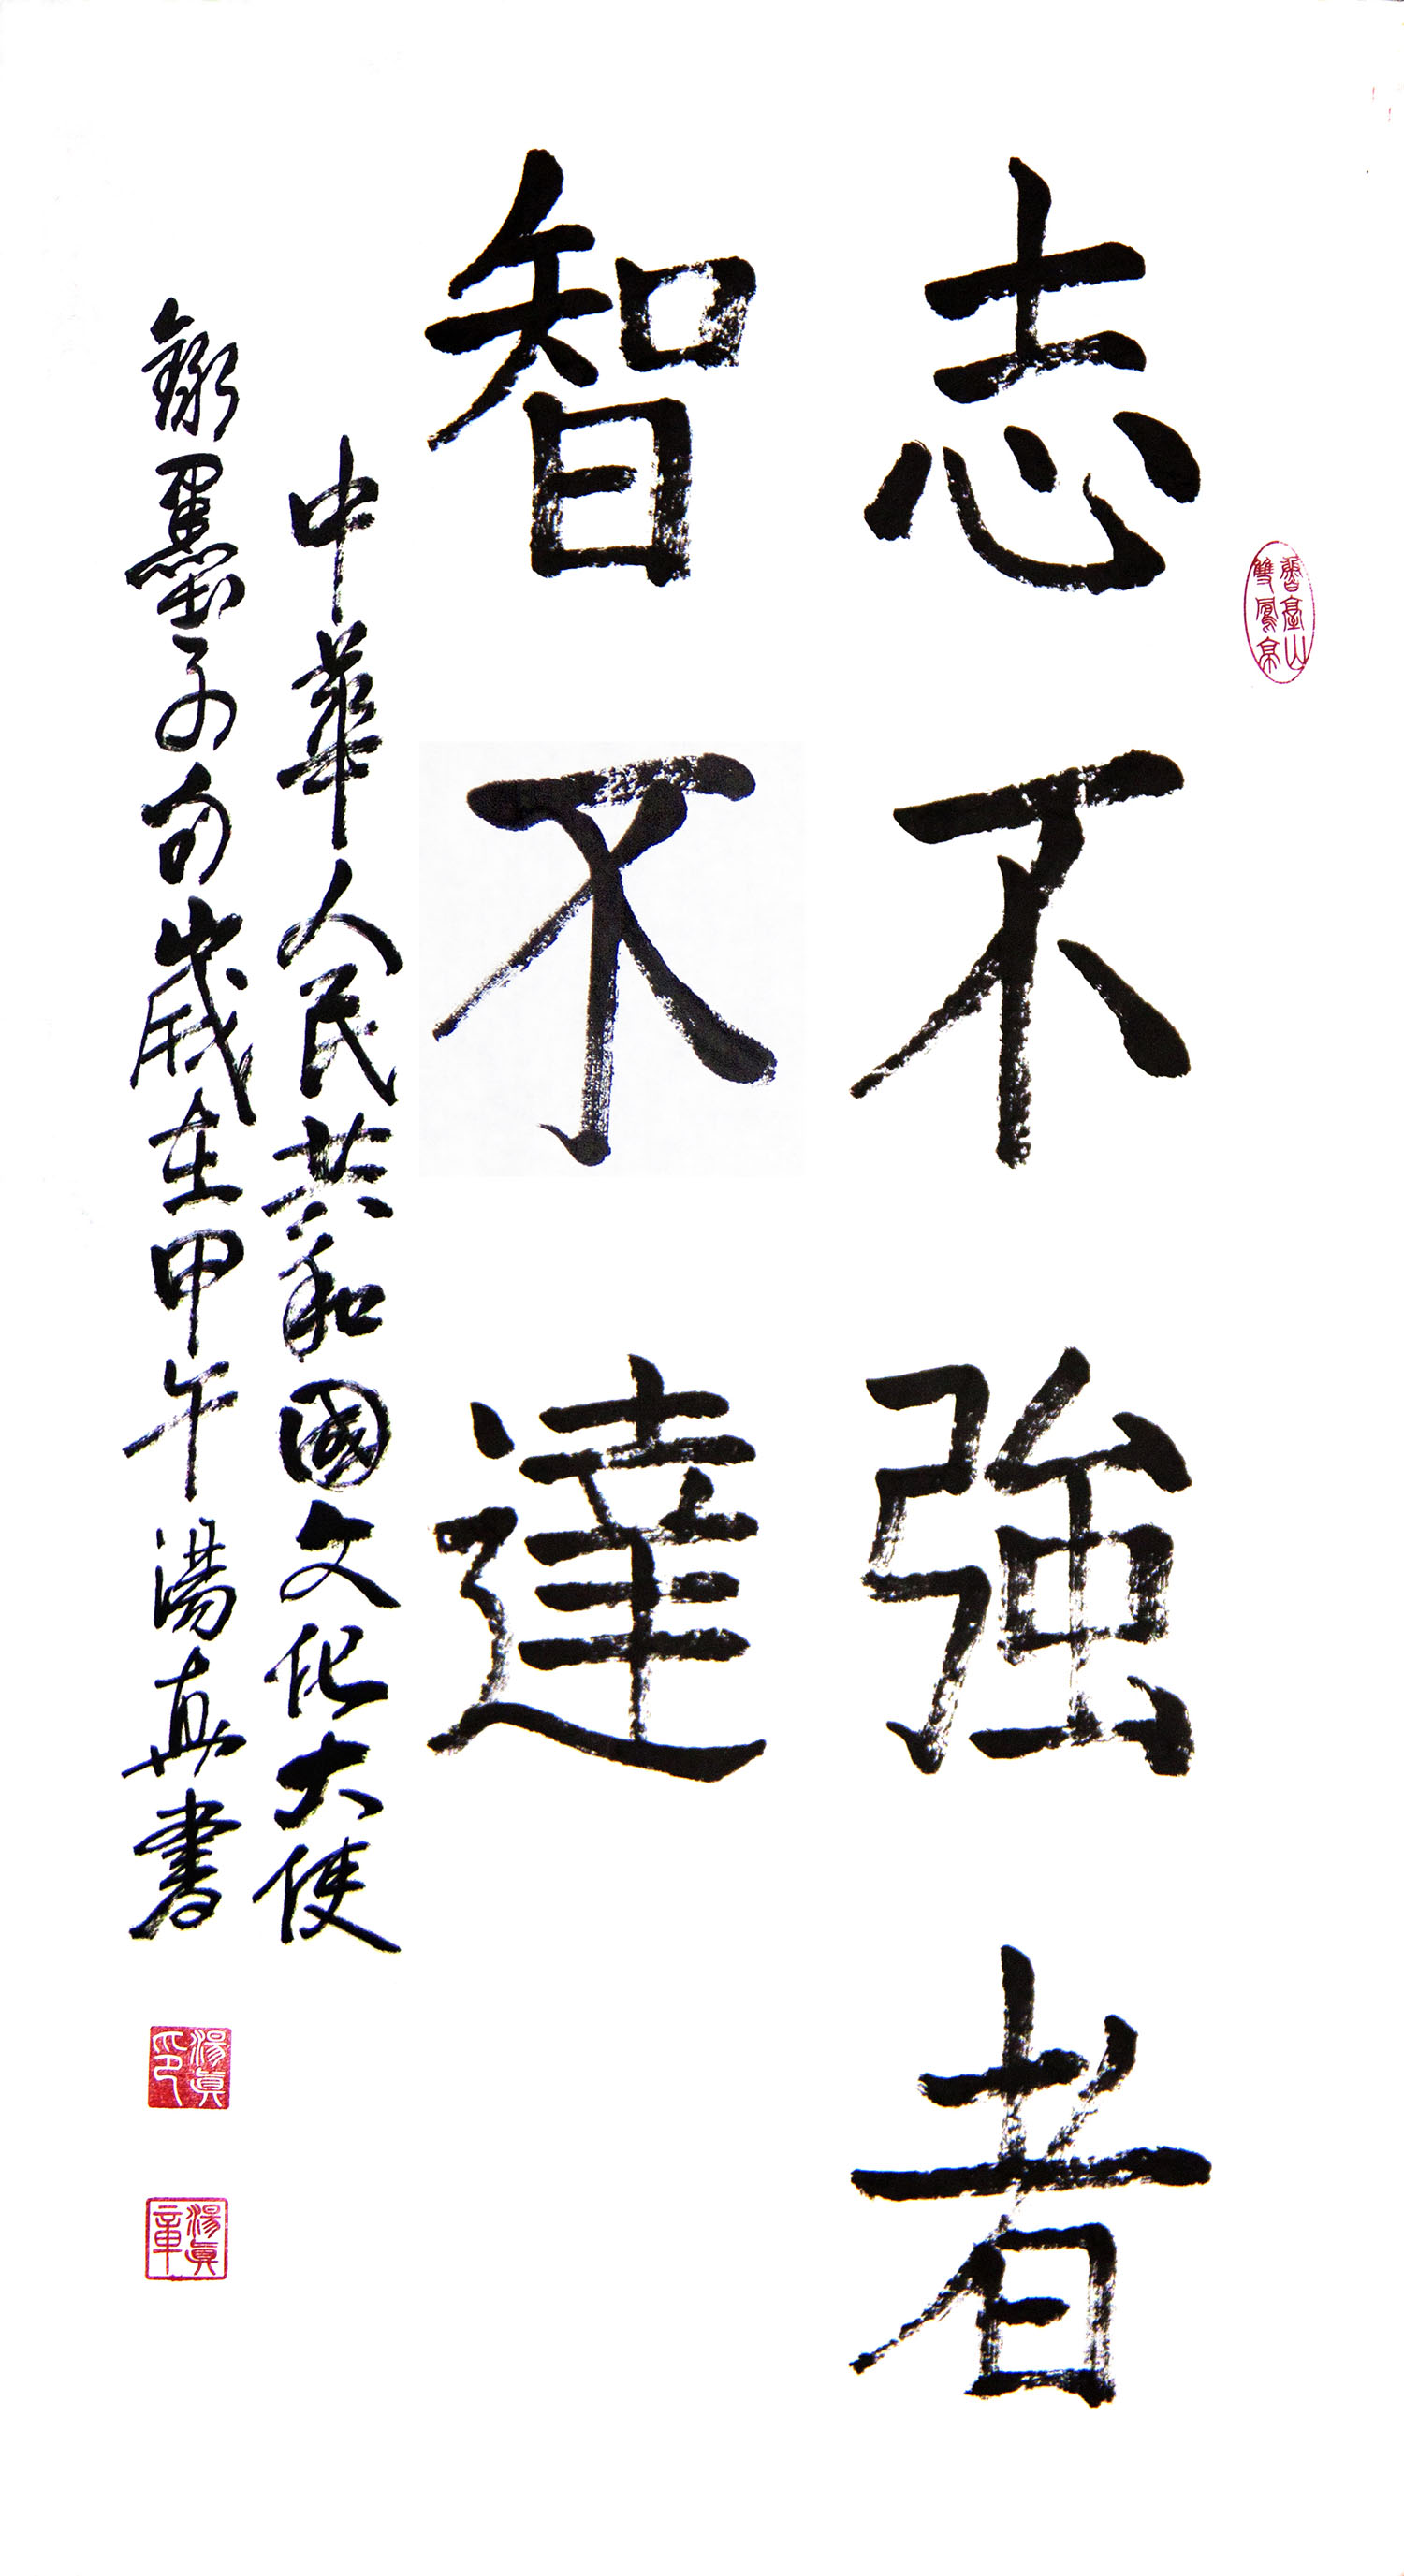 志不強者
智不達
中華人民共和國文化大使
錄墨子句歲在甲午湯真書
魯臺山
雙鳳亭
湯真印
湯真章